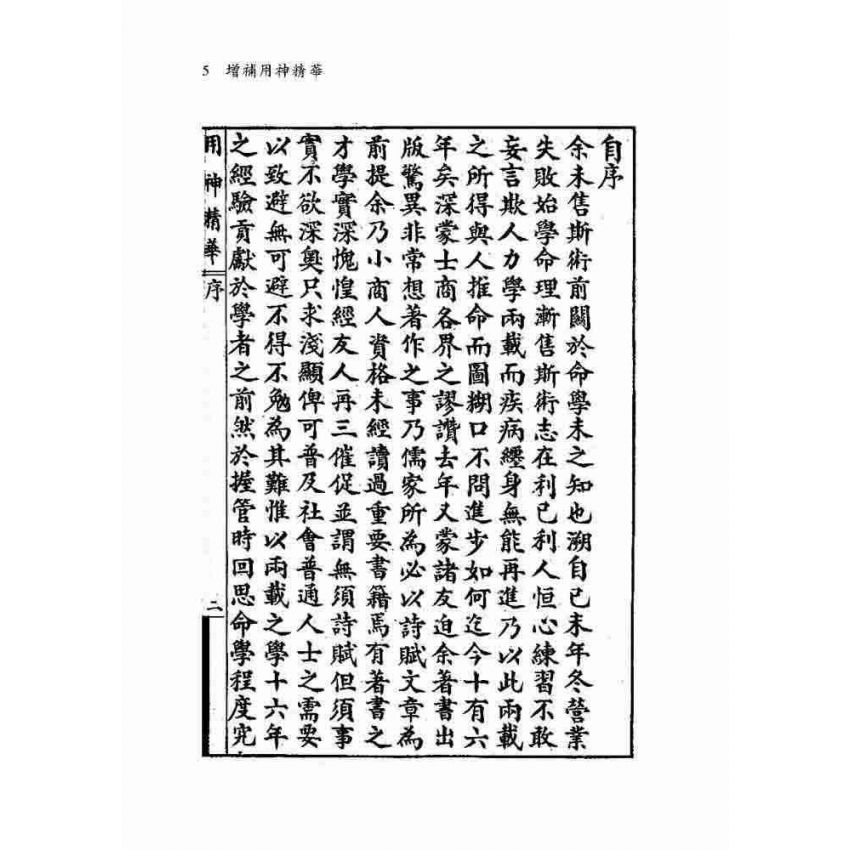 5 增補用神精華
自序
余未售斯術前關於命學未之知也溯自己未年冬營業
失敗始學命理漸售斯術志在利己利人恒心練習不敢
妄言欺人力學兩載而疾病纏身無能再進乃以此兩載
之所得與人推命而圖糊口不問進步如何迄今十有六
年矣深蒙士商各界之謬讚去年又蒙諸友迫余著書出
版驚異非常想著作之事乃儒家所為必以詩賦文章為
前提余乃小商人資格未經讀過重要書籍焉有著書之
才學實深愧惶經友人再三催促並謂無須詩賦但須事
實不欲深奧只求淺顯俾可普及社會普通人士之需要
以致避無可避不得不勉為其難惟以兩載之學十六年
之經驗貢獻於學者之前然於握管時回思命學程度究
用神精華 序 二